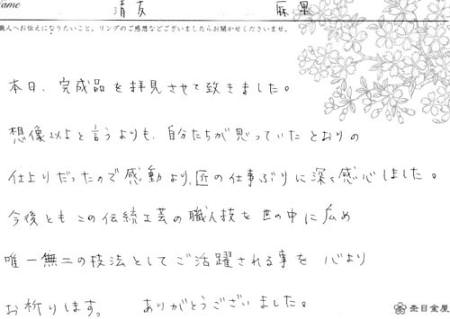 ame
清友 麻里
職人へお伝えになりたいこと。リングのご感想などございましたらお聞かせくださいませ。
本日、完成品を拝見させて致きました。
想像以上と言うよりも、自分たちが思っていたとおりの
仕上りだったので感動より、匠の仕事ぶりに深く感心しました。
今後ともこの伝統工芸の職人技を世の中に広め
唯一無二の技法としてご活躍される事を 心より
お祈りします。 ありがとうございました。
杢目金屋